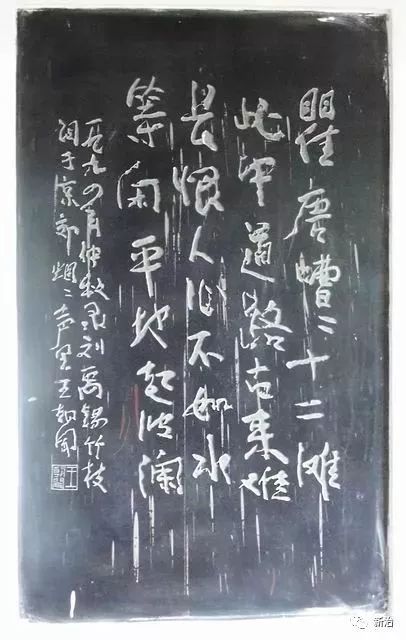 瞿唐嘈〻十二滩
此中道路古来难
长恨人心不如水
等闲平地起波澜
年仲秋录刘禹锡竹枝
词于京郊〻声里王
新治